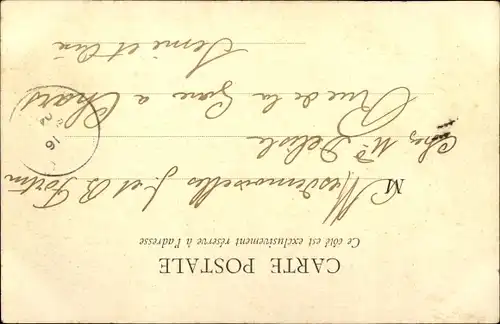 CARTE POSTALE
Ce côté est exclusivement réservé à l'adresse
M Mesdemoiselles J. et B. Fortin
Chez Mr Delisle
Rue de la Gare à Chars
Seine et Oise
16